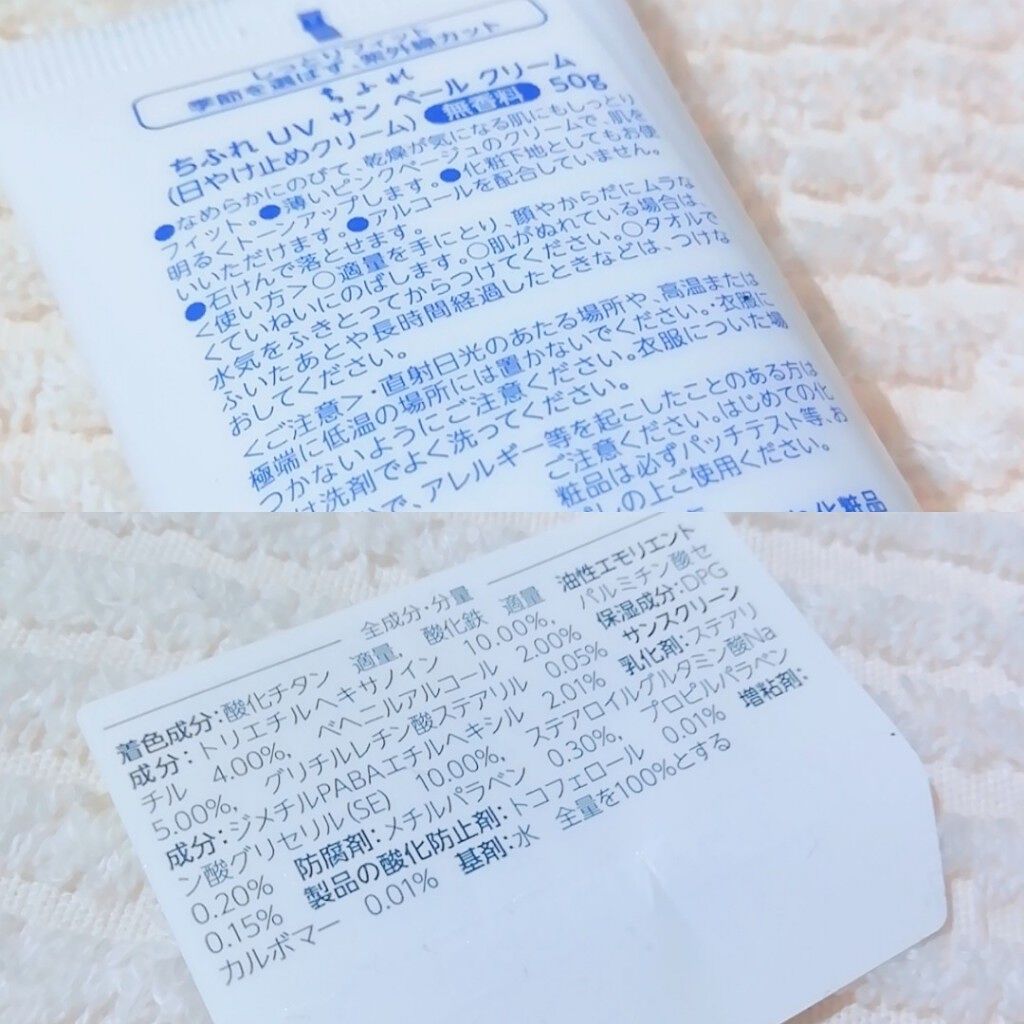 しっとりフィット
季節を選ばず、紫外線カット
ちふれ
ちふれ UV サン ベール クリーム
(日やけ止めクリーム) 無香料 50g
●なめらかにのびて、乾燥が気になる肌にもしっとり
フィット。●薄いピンクベージュのクリームで、肌を
明るくトーンアップします。●化粧下地としてもお使
いいただけます。●アルコールを配合していません。
●石けんで落とせます。
<使い方>○適量を手にとり、顔やからだにムラな
くていねいにのばします。○肌がぬれている場合は、
水気をふきとってからつけてください。○タオルで
ふいたあとや長時間経過したときなどは、つけな
おしてください。
<ご注意>・直射日光のあたる場所や、高温または
極端に低温の場所には置かないでください。・衣服に
つかないようにご注意ください。衣服についた場
は洗剤でよく洗ってください。
で、アレルギー等を起こしたことのある方は
ご注意ください。はじめての化
粧品は必ずパッチテスト等、お
の上ご使用ください。
化粧品
全成分・分量
着色成分:酸化チタン 適量, 酸化鉄 適量 油性エモリエント
成分:トリエチルヘキサノイン 10.00%, パルミチン酸セ
チル 4.00%, ベヘニルアルコール 2.00% 保湿成分:DPG
5.00%, グリチルレチン酸ステアリル 0.05% サンスクリーン
成分:ジメチルPABAエチルヘキシル 2.01% 乳化剤:ステアリ
ン酸グリセリル(SE) 10.00%, ステアロイルグルタミン酸Na
0.20% 防腐剤:メチルパラベン 0.30%, プロピルパラベン
0.15% 製品の酸化防止剤:トコフェロール 0.01% 増粘剤:
カルボマー 0.01% 基剤:水 全量を100%とする